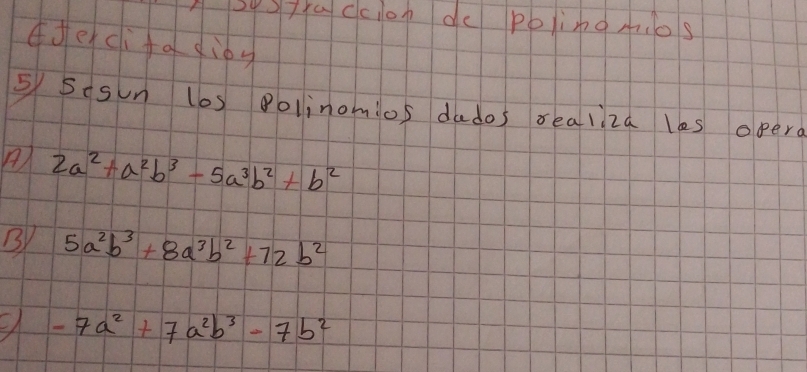 sustraccion de polinomios
Ejercitacion
5) Segun los polinomios dados realiza las opera
A) 2a² + a²b³ - 5a³b² + b²
B) 5a²b³ + 8a³b² + 12b²
c) -7a² + 7a²b³ - 7b²